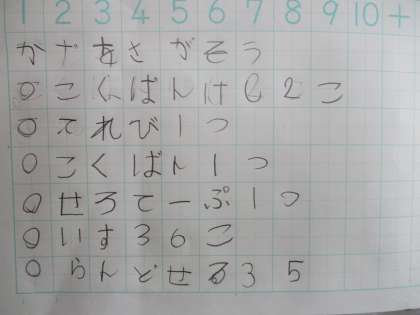 1 2 3 4 5 6 7 8 9 10 +
かずをさがそう
○こくばんけし2こ
○てれび1つ
○こくばん1つ
○せろてーぷ1つ
○いす36こ
○らんどせる35